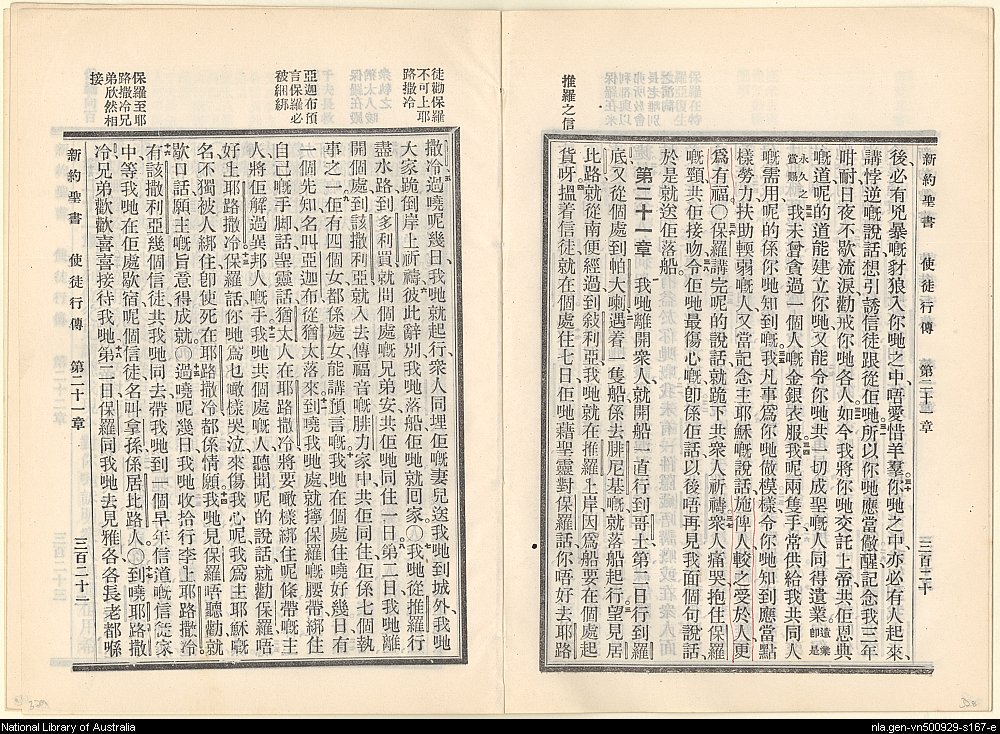 新約聖書 使徒行傳 第二十章 三百二十
後必有兇暴嘅豺狼入你哋之中、唔愛惜羊羣。三十你哋之中、亦必有人起來、
講悖逆嘅說話、想引誘信徒跟從佢哋。三一所以你哋應當儆醒、記念我三年
咁耐、日夜不歇、流淚勸戒你哋各人。三二如今我將你哋交託上帝、共佢恩典
嘅道、呢的道能建立你哋、又能令你哋共一切成聖嘅人、同得遺業、遺業即是
永久之賞賜三三我未曾貪過一個人嘅金銀衣服。三四我呢兩隻手、常供給我共同人
嘅需用、呢的係你哋知到嘅。三五我凡事爲你哋做模樣、令你哋知到應當點
樣勞力、扶助輭弱嘅人、又當記念主耶穌嘅說話、施俾人較之受於人更
爲有福。○三六保羅講完呢的說話、就跪下共衆人祈禱。三七衆人痛哭、抱住保羅
嘅頸、共佢接吻。三八令佢哋最傷心嘅、卽係佢話以後唔再見我面個句說話、
於是就送佢落船。
第二十一章 一我哋離開衆人、就開船一直行到哥士、第二日行到羅
底、又從個處到帕大喇。二遇着一隻船、係去腓尼基嘅、就落船起行。三望見居
比路、就從南便經過、到敍利亞、我哋就在推羅上岸、因爲船要在個處起
貨呀。四搵着信徒、就在個處住七日、佢哋藉聖靈對保羅話、你唔好去耶路
推羅之信
徒勸保羅
不可上耶
路撒冷
亞迦布預
言保羅必
被綑綁
保羅至耶
路撒冷兄
弟欣然相
接
撒冷。五過嘵呢幾日、我哋就起行、衆人同埋佢嘅妻兒、送我哋到城外、我哋
大家跪倒岸上祈禱。六彼此辭別、我哋落船、佢哋就回家。○七我哋從推羅行
盡水路、到多利買、就問個處嘅兄弟安、共佢哋同住一日。八第二日我哋離
開個處、到該撒利亞、就入去傳福音嘅腓力家中、共佢同住、佢係七個執
事之一。九佢有四個女、都係處女、能講預言嘅。十我哋在個處住嘵好幾日、有
一個先知、名叫亞迦布、從猶太落來。十一到嘵我哋處、就擰保羅嘅腰帶、綁住
自己嘅手脚、話、聖靈話、猶太人在耶路撒冷、將要噉樣綁住呢條帶嘅主
人、將佢解過異邦人嘅手。十二我哋共個處嘅人、聽聞呢的說話、就勸保羅唔
好上耶路撒冷。十三保羅話、你哋爲乜噉樣哭泣來傷我心呢、我爲主耶穌嘅
名、不獨被人綁住、卽使死在耶路撒冷、都係情願。十四我哋見保羅唔聽勸、就
歇口、話、願主嘅旨意得成就。○十五過嘵呢幾日、我哋收拾行李、上耶路撒冷。
十六有該撒利亞幾個信徒、共我哋同去、帶我哋到一個早年信道嘅信徒家
中、等我哋在佢處歇宿、呢個信徒名叫拿孫、係居比路人。○十七到嘵耶路撒
冷、兄弟歡歡喜喜接待我哋。十八第二日保羅同我哋去見雅各、各長老都喺
新約聖書 使徒行傳 第二十一章 三百二十一
National Library of Australia
nla.gen-vn500929-s167-e